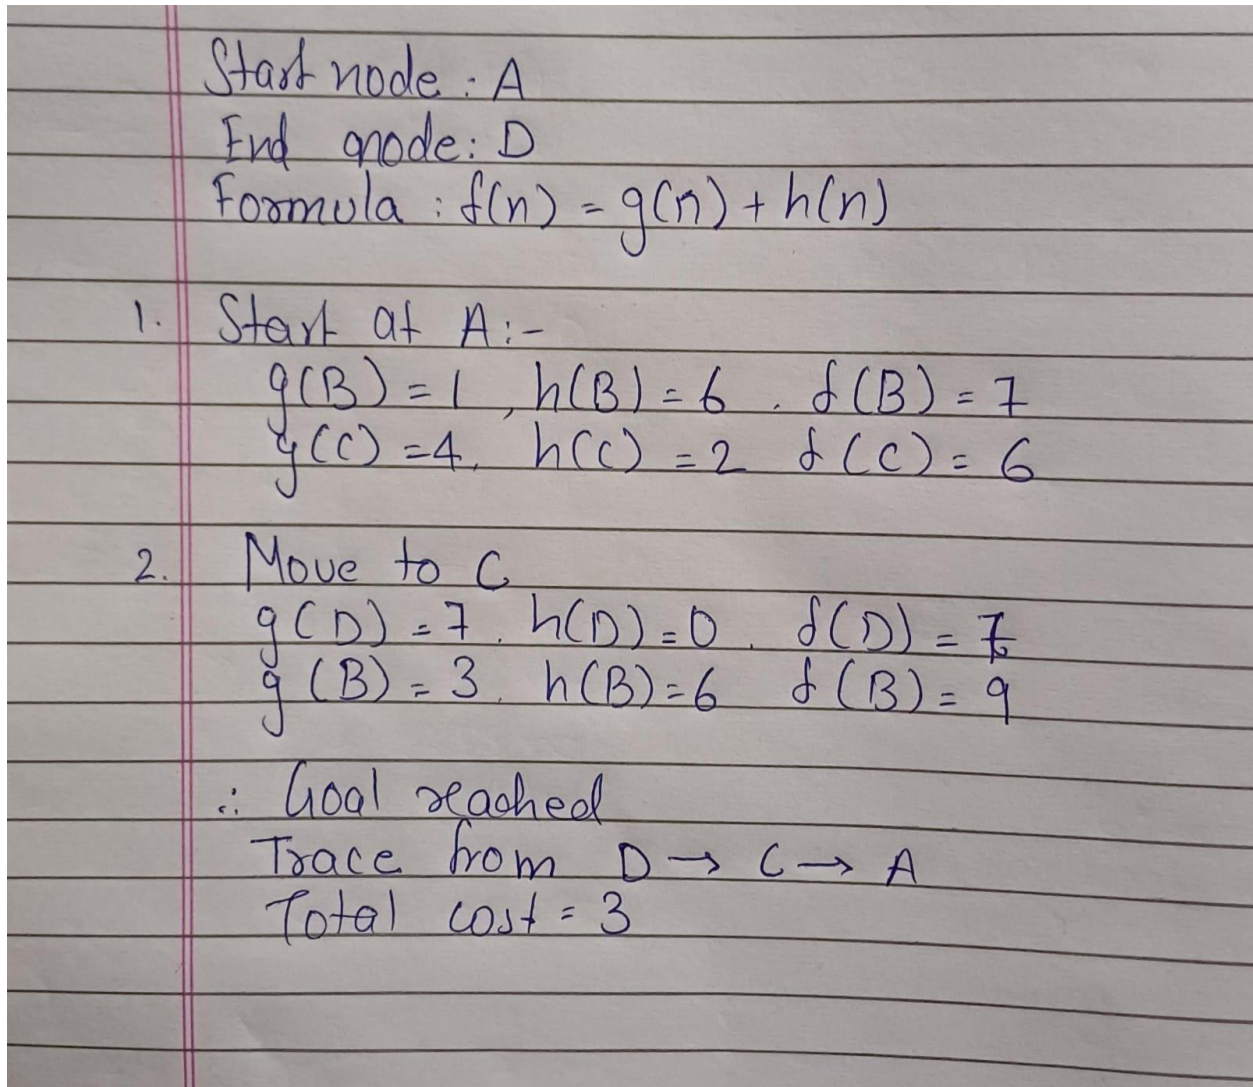 Start node : A
End node : D
Formula : f(n) = g(n) + h(n)
1. Start at A :-
g(B) = 1 , h(B) = 6 . f(B) = 7
g(C) = 4 , h(C) = 2 f(C) = 6
2. Move to C
g(D) = 7 . h(D) = 0 . f(D) = 7
g(B) = 3 . h(B) = 6 f(B) = 9
∴ Goal reached
Trace from D → C → A
Total cost = 3